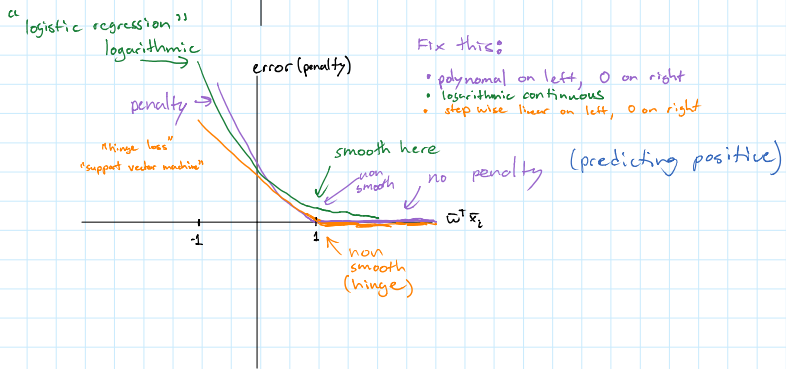 "logistic regression"
logarithmic
error (penalty)
Fix this:
• polynomal on left, 0 on right
• logarithmic continuous
• step wise linear on left, 0 on right
penalty
"hinge loss"
"support vector machine"
smooth here
non
smooth
no penalty
(predicting positive)
-1
1
w̄ᵀ x̄ᵢ
non
smooth
(hinge)